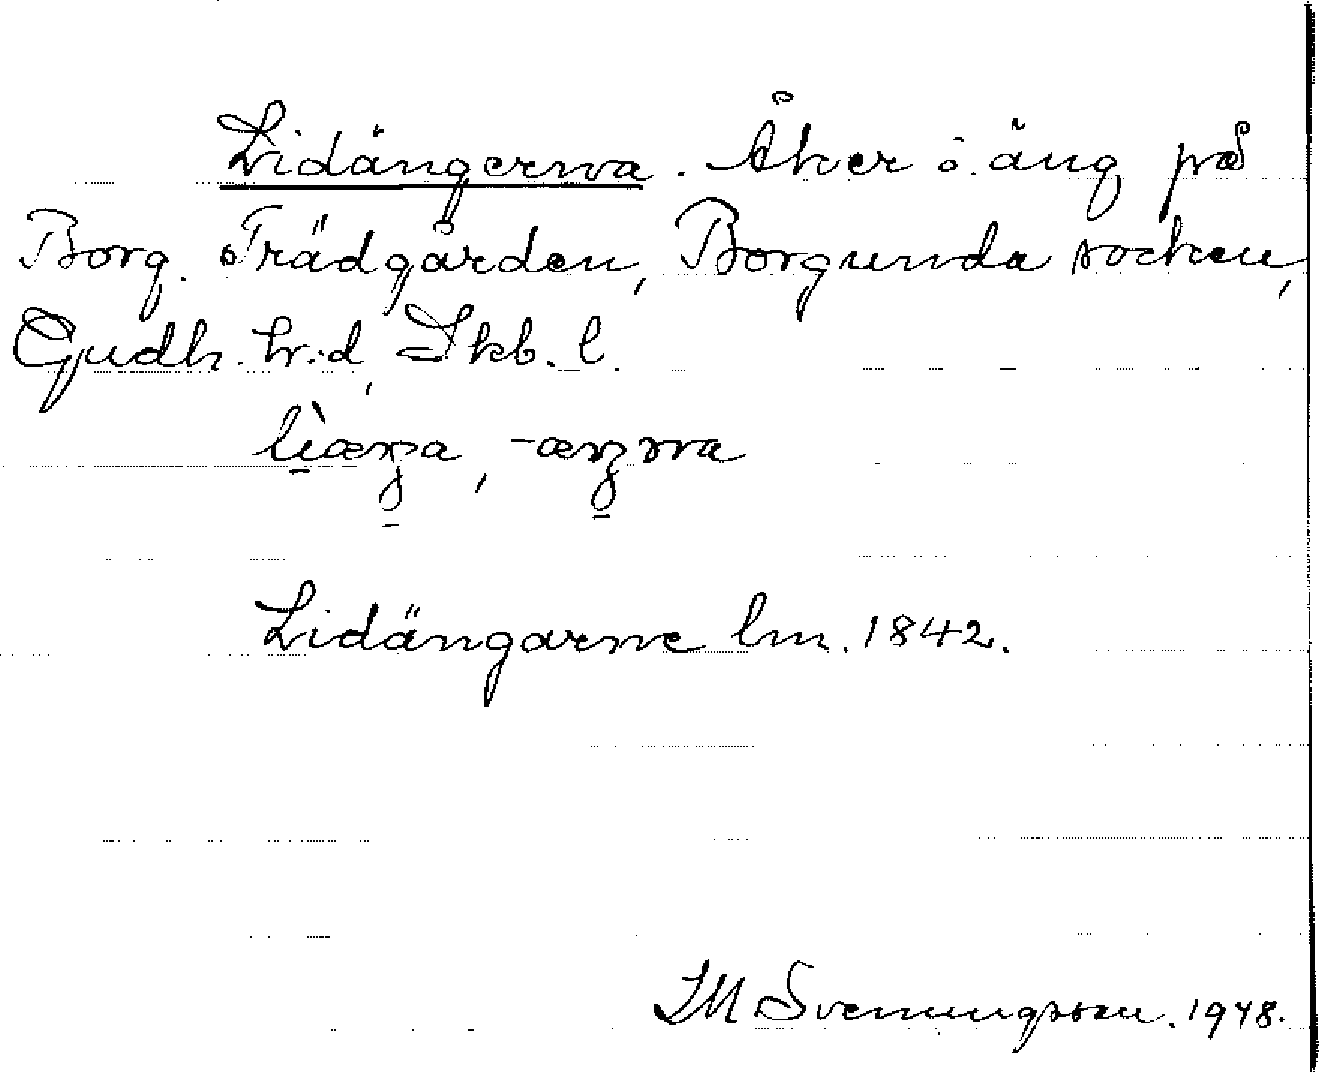 Lidängerna. Åker o. äng på
Borg. Trädgården, Borgunda socken,
Gudh. hrd, Skb. l.
lìæŋa, -æŋɹna
Lidängarne lm. 1842.
IM Svenungsson. 1948.